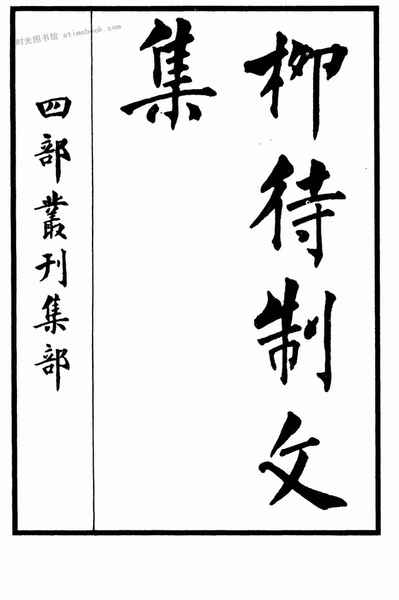 柳待制文
集
四部叢刊集部
时光图书馆 atimebook.com